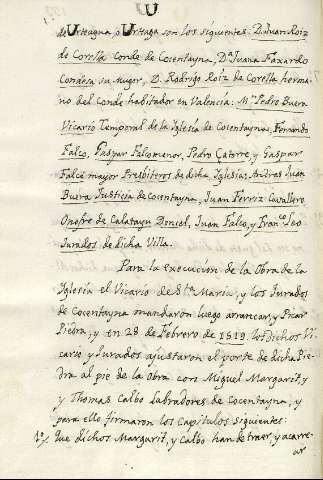 U
de Urteaga, o Urtiaga son los siguientes: D. Juan Roiz
de Corella Conde de Cocentayna, D.ª Juana Faxardo
Condesa su Muger, D. Rodrigo Roiz de Corella herma
no del Conde habitador en Valencia: M.n Pedro Buera
Vicario Temporal de la Iglesia de Cocentayna, Fernando
Falco, Gaspar Falco menor, Pedro Catorre y Gaspar
Falcó mayor Presbiteros de dicha Iglesia; Andres Juan
Buera Justicia de Cocentayna, Juan Ferriz Cavallero
Onofre de Calatayu Doncel, Juan Falco, y Fran.co
Jurados de dicha Villa.
Para la execucion de la Obra de la
Iglesia el Vicario de S.ta Maria, y los Jurados
de Cocentayna mandaron luego arrancar, y Picar
Piedra, y en 28 de Febrero de 1519. los dichos Vi
cario y Jurados ajustaron el porte de dicha Pie
dra al pie de la Obra con Miguel Margarit, y
y Thomas Calbo Labradores de Cocentayna, y
para ello firmaron los Capitulos siguientes:
Que dichos Margarit, y Calbo han de traer, y acarre
ar